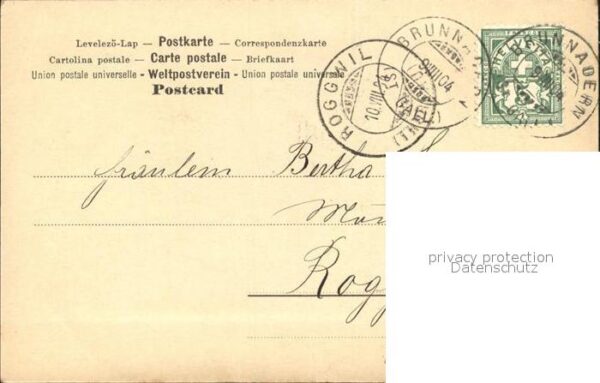 Levelező-Lap — Postkarte — Correspondenzkarte
Cartolina postale — Carte postale — Briefkaart
Union postale universelle - Weltpostverein - Union postale universelle
Postcard
ROGGWIL
10.VIII.04
BRUNNADERN
9.VIII.04
(ST. GALL.)
HELVETIA
BRUNNADERN
9.VIII.04
Fräulein Bertha
Rogg
privacy protection
Datenschutz